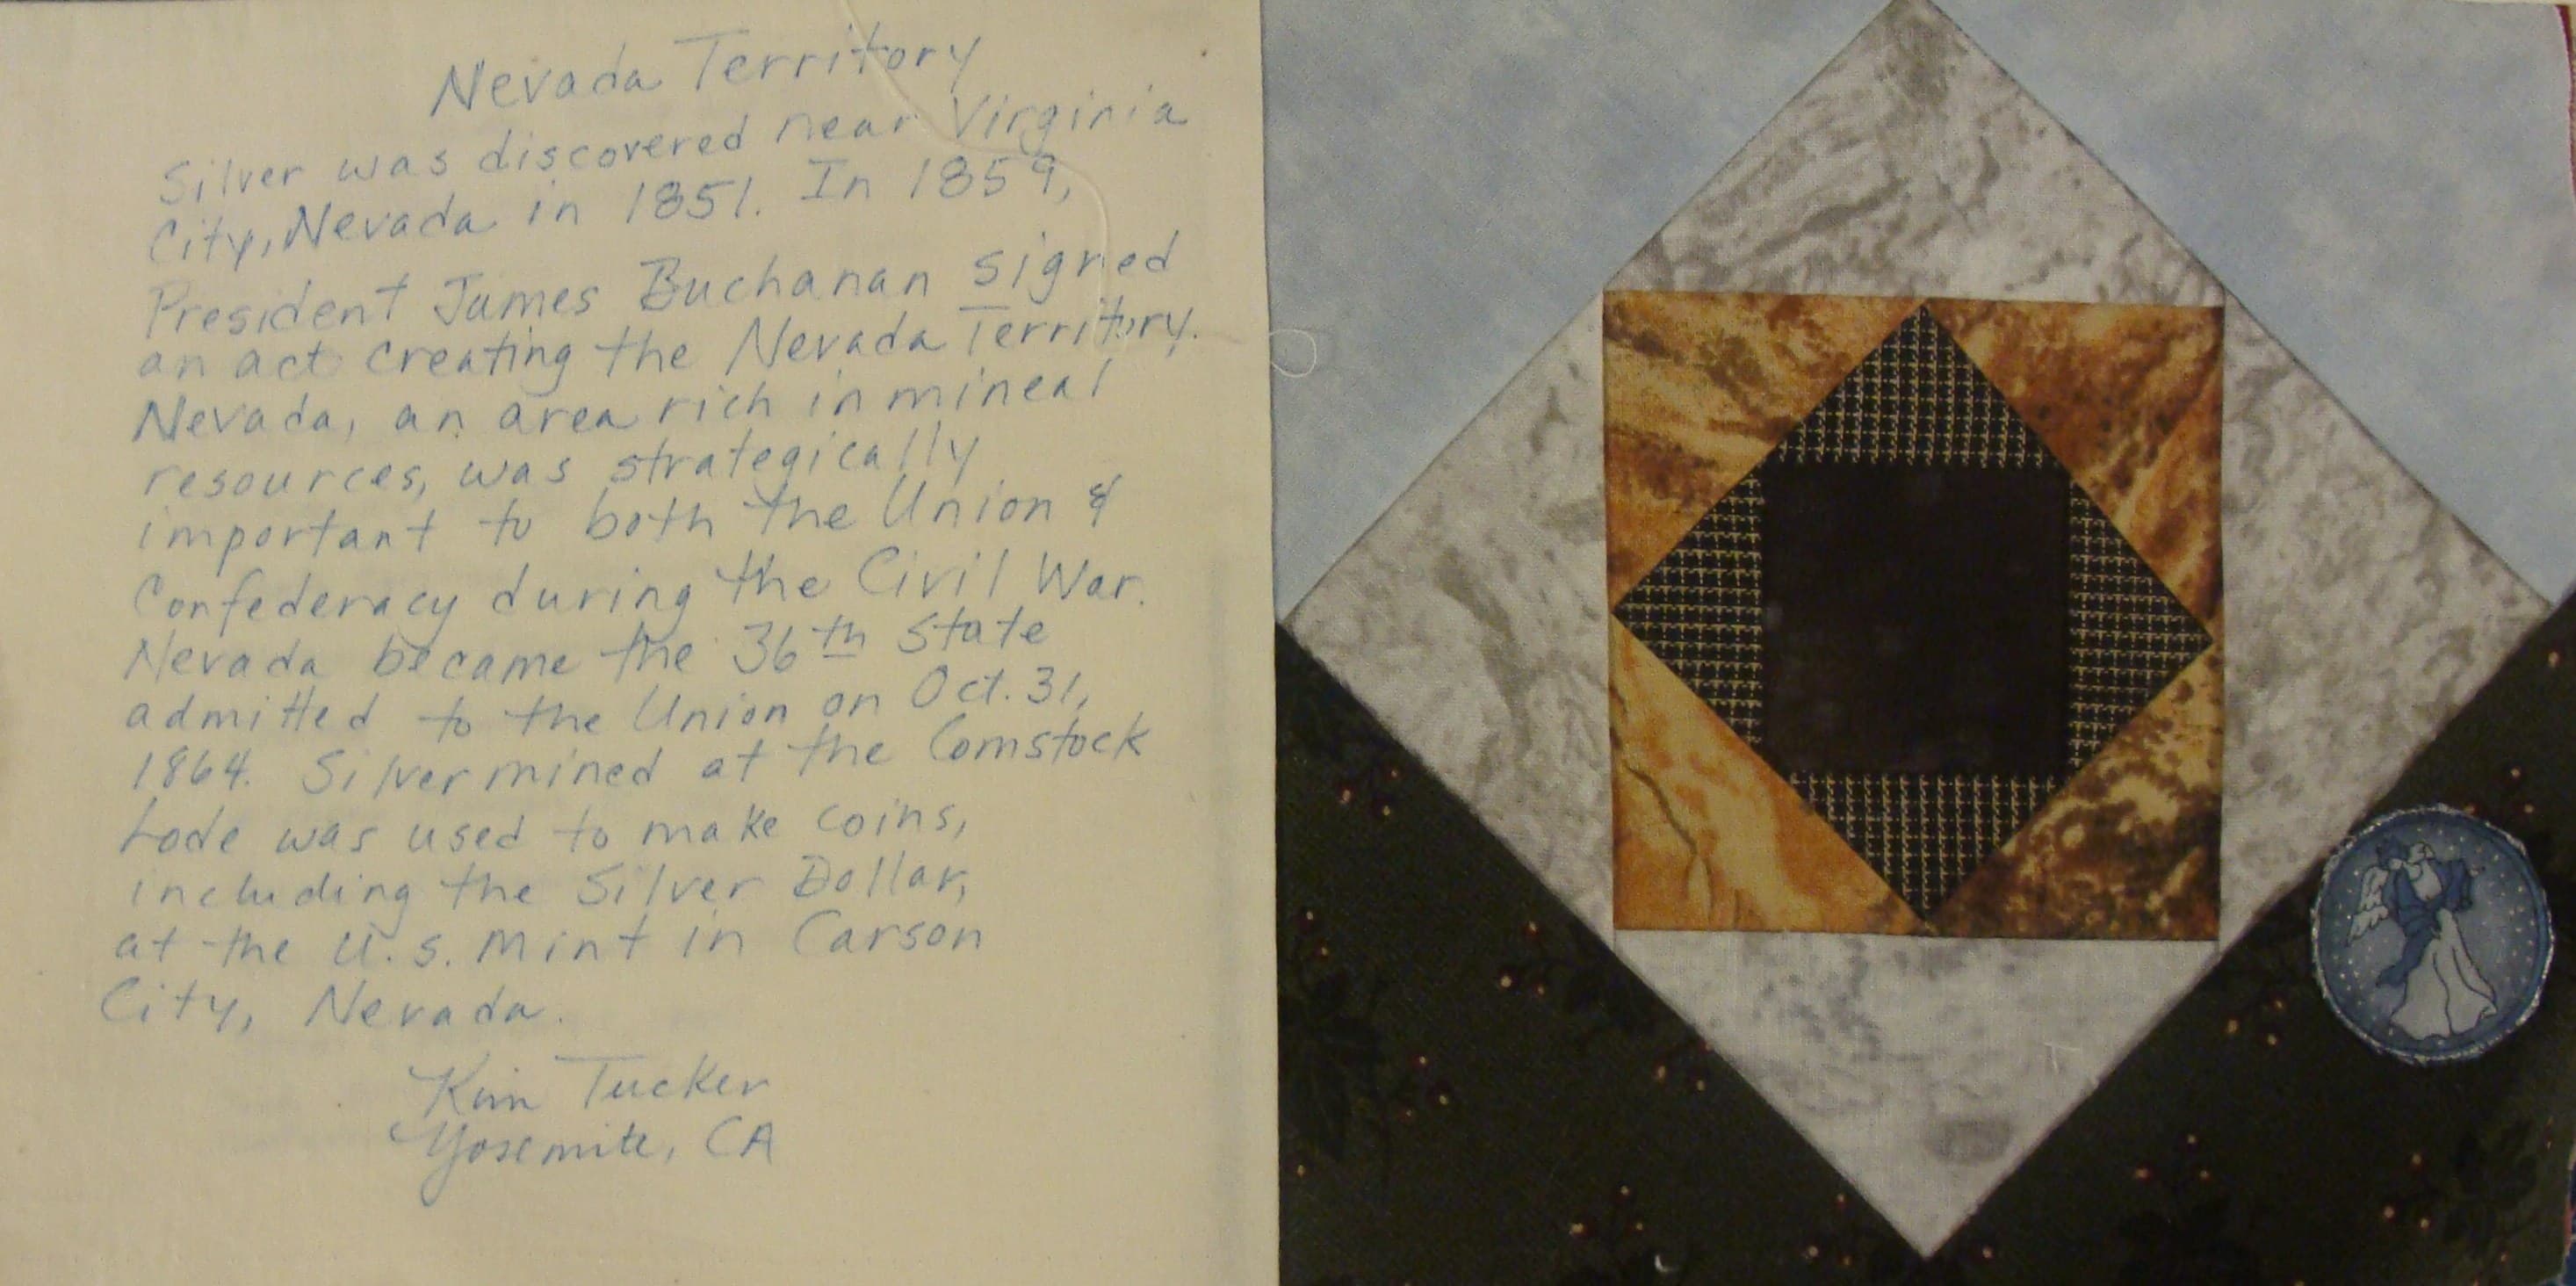 Nevada Territory
Silver was discovered near Virginia
City, Nevada in 1851. In 1859,
President James Buchanan signed
an act creating the Nevada Territory.
Nevada, an area rich in mineal
resources, was strategically
important to both the Union &
Confederacy during the Civil War.
Nevada became the 36th state
admitted to the Union on Oct. 31,
1864. Silver mined at the Comstock
Lode was used to make coins,
including the Silver Dollar,
at the U.S. Mint in Carson
City, Nevada.
Kim Tucker
Yosemite, CA